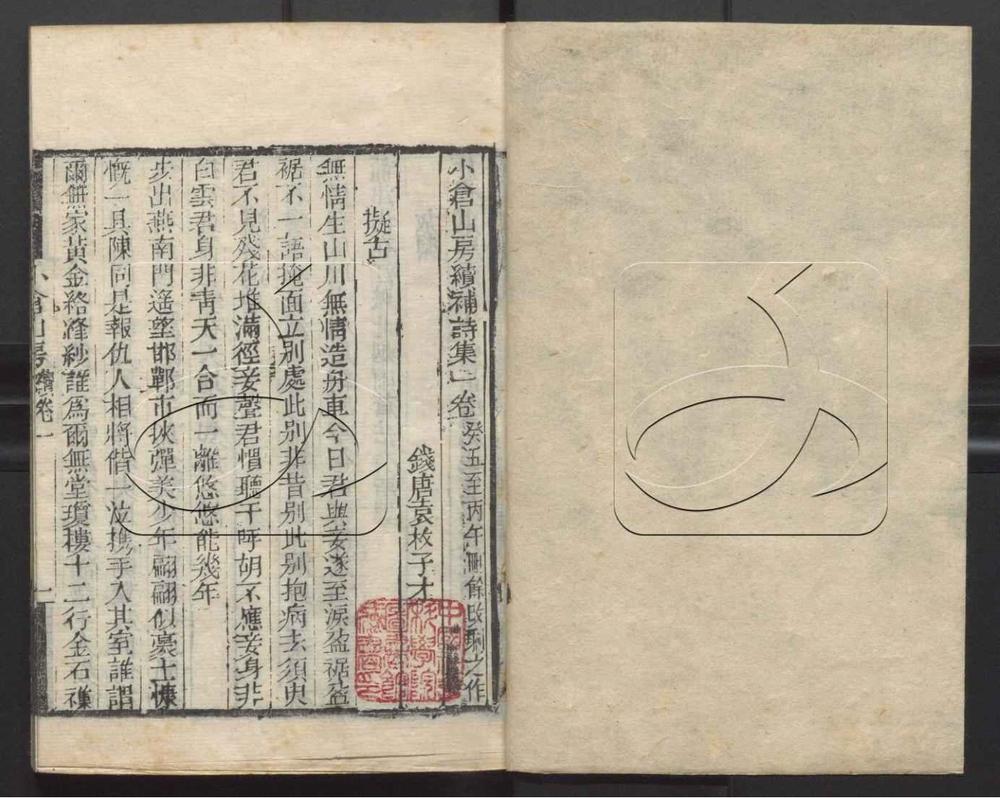 小倉山房續補詩集一卷 癸丑至丙午刪餘改剩之作
錢唐袁枚子才
擬古
無情生山川無情造舟車今日君與妾遂至淚盈裾盈
裾不一語掩面立別處此別非昔別此別抱病去須臾
君不見殘花堆滿徑妾聲君慣聽千呼胡不應妾身非
白雲君身非靑天一合而一離悠悠能幾年
步出燕南門遙望邯鄲市挾彈美少年翩翩似豪士慷
慨一具陳同是報仇人相將偕一泣携手入其室誰謂
爾無家黃金絡絳紗誰爲爾無堂瓊樓十二行金石雜
小倉山房續卷一
一